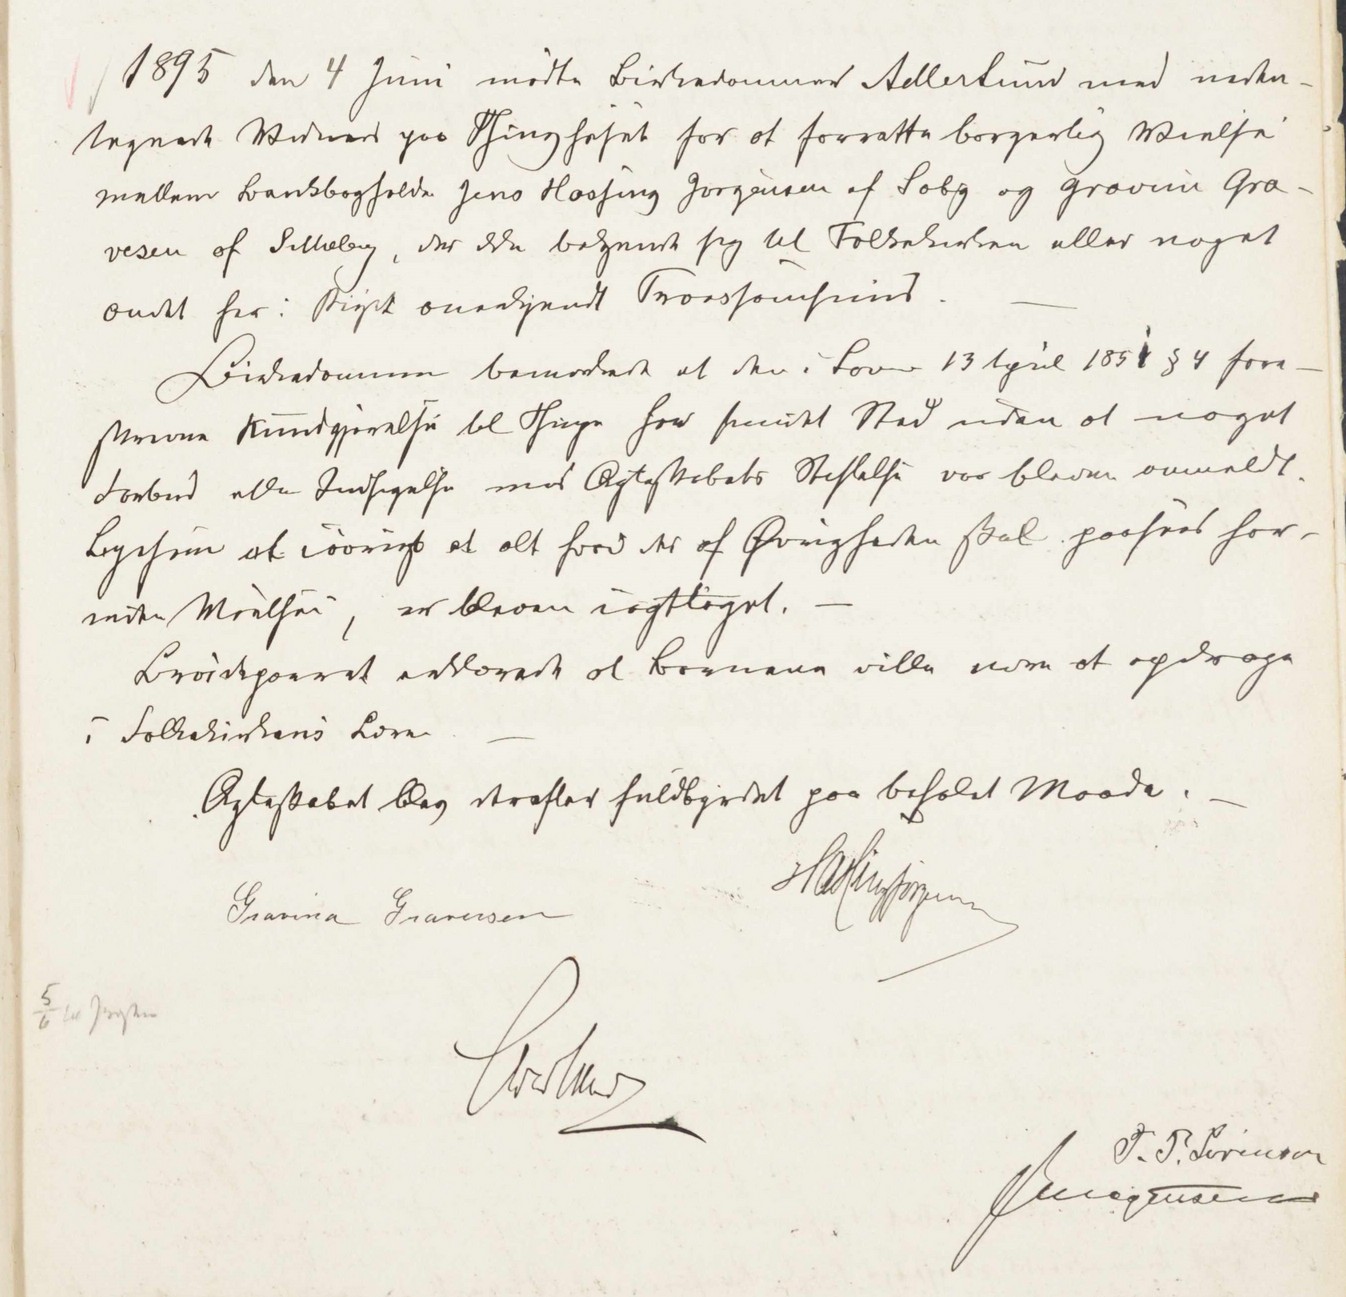 1895 den 4 Juni mødte Birkedommer Adlerlund med neden-
tegnede Vidner paa Thinghuset for at forrette borgerlig Vielse
mellem Bankbogholder Jens Hassing Jørgensen af Saby og Gravine Gra-
vesen af Silkeborg, der ikke bekjendte sig til Folkekirken eller noget
andet her i Riget anerkjendt Troessamfund. —
Birkedommeren bemærkede at den i Lov 13 April 1851 § 4 fore-
skrevne Kundgjørelse til Thinge har fundet Sted uden at noget
Forbud eller Indsigelse mod Ægteskabets Stiftelse var bleven anmeldt.
Ligesom at iøvrigt at alt hvad der af Øvrigheden skal paasees for-
inden Vielsen, er bleven iagttaget. —
Brudeparret erklærede at Børnene ville være at opdrage
i Folkekirkens Lære —
Ægteskabet blev derefter fuldbyrdet paa befalet Maade. —
Gravina Graversen HassingJørgensen
5/6 til
T. P. Sørensen